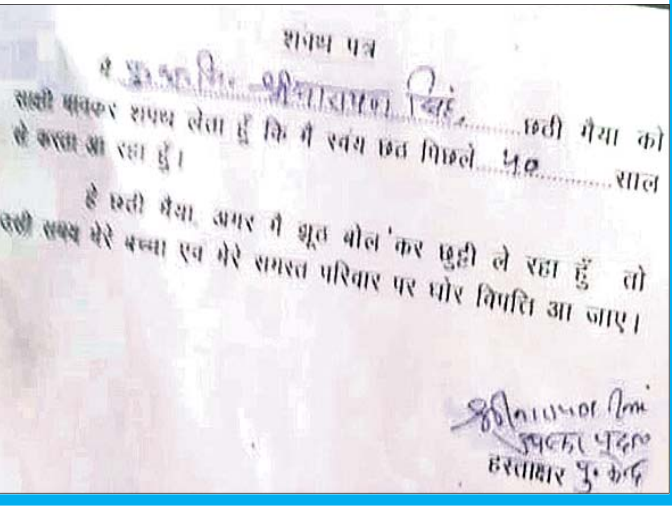 शपथ पत्र
मै पु०अ०नि० श्रीनारायण सिंह, छठी मैया को
साक्षी मानकर शपथ लेता हूँ कि मै स्वंय छठ पिछले 40 साल
से करता आ रहा हूँ।
हे छठी मैया, अगर मै झूठ बोल कर छुट्टी ले रहा हूँ तो
उसी समय मेरे बच्चा एव मेरे समस्त परिवार पर घोर विपत्ति आ जाए।
श्रीनारायण सिंह
हस्ताक्षर पु० केन्द्र